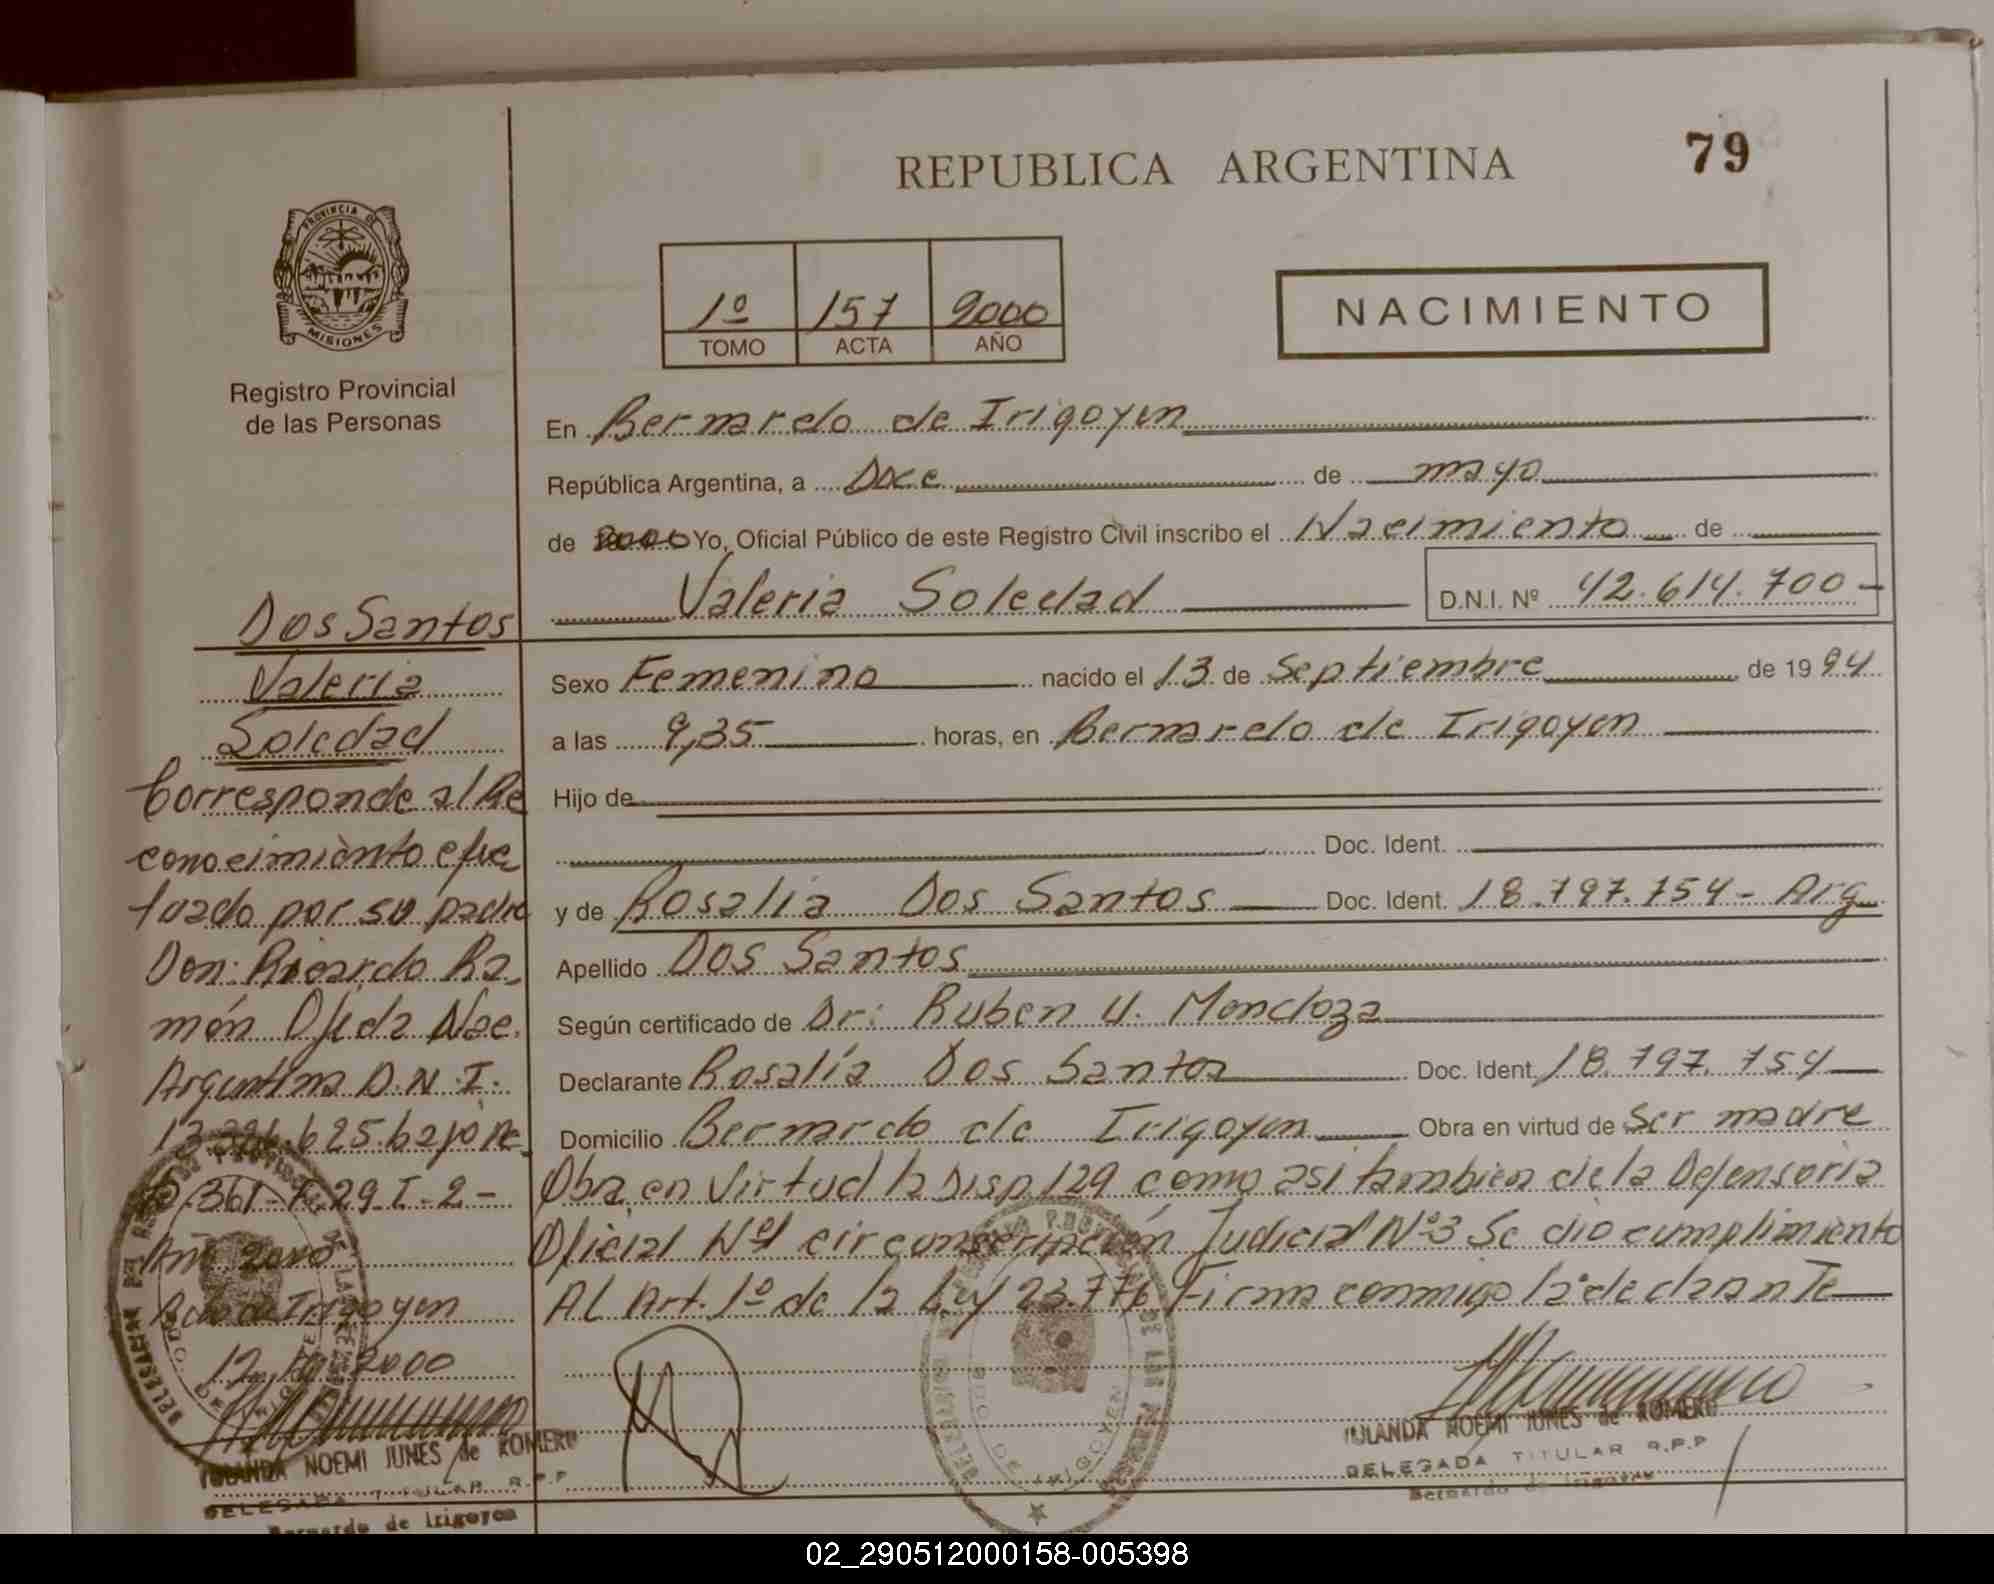 REPUBLICA ARGENTINA
79
PROVINCIA DE
MISIONES
Registro Provincial
de las Personas
1º 157 2000
TOMO ACTA AÑO
NACIMIENTO
En Bernardo de Irigoyen
República Argentina, a Doce de mayo
de 2000 Yo, Oficial Público de este Registro Civil inscribo el Nacimiento de
Valeria Soledad D.N.I. Nº 42.614.700-
Sexo Femenino nacido el 13 de Septiembre de 1994
a las 9,35 horas, en Bernardo de Irigoyen
Hijo de
Doc. Ident.
y de Rosalia Dos Santos Doc. Ident. 18.797.754- Arg
Apellido Dos Santos
Según certificado de Dr: Ruben U. Moncloza
Declarante Rosalía Dos Santos Doc. Ident. 18.797.754
Domicilio Bernardo de Irigoyen Obra en virtud de Ser madre
Obra en Virtud la Disp 129 como asi tambien de la Defensoria
Oficial Nº1 circunscripción Judicial Nº3 Se dio cumplimiento
Al Art. 1º de la Ley 23.776 Firma conmigo la declarante
Dos Santos
Valeria
Soledad
Corresponde al Re
conocimiento efec
tuado por su padre
Don: Ricardo Ra
món Ojeda Nac.
Argentina D.N.I.
bajo Nº
361-F.29-T-2-
Año 2000
Bdo de Irigoyen
12 2000
YOLANDA NOEMI JUNES de ROMERO
DELEGADA TITULAR R.P.P
Bernardo de Irigoyen
YOLANDA NOEMI JUNES de ROMERO
DELEGADA TITULAR R.P.P
Bernardo de Irigoyen
02_290512000158-005398